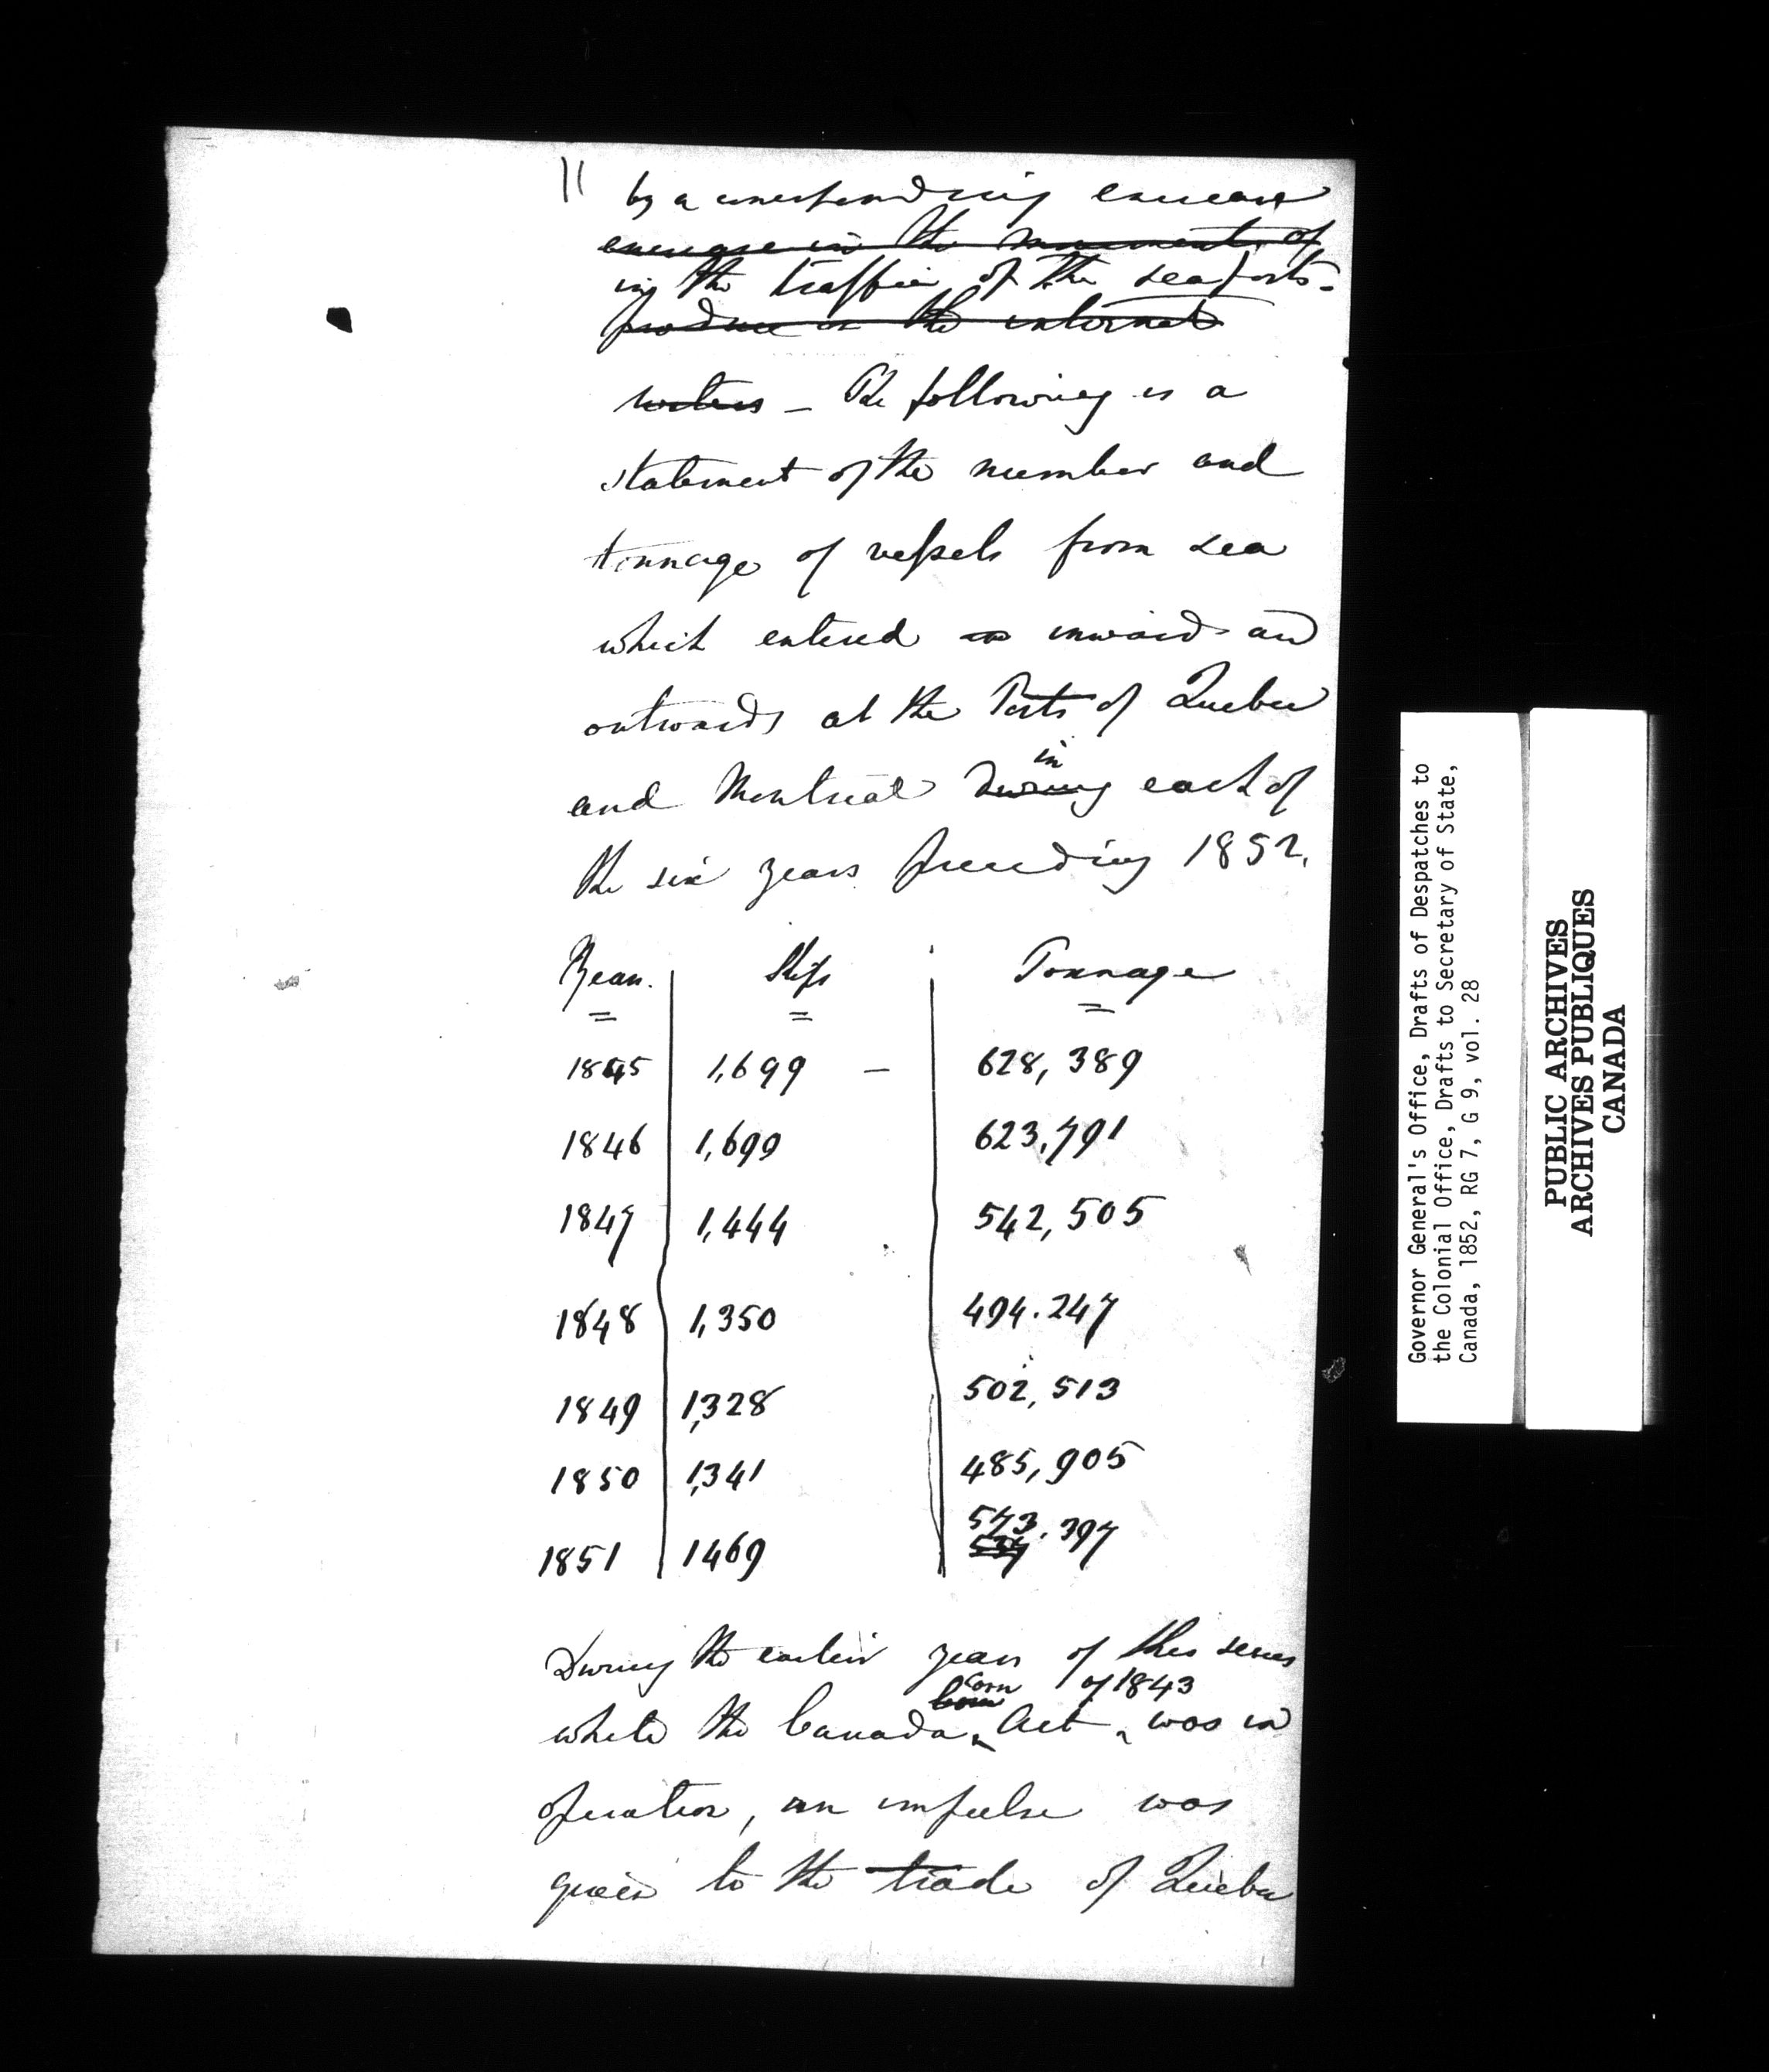 11
by a corresponding encrease
encrease in the movement of
in the traffic of the seaports.
produce on the internal
waters – The following is a
statement of the number and
tonnage of vessels from sea
which entered inwards and
outwards at the Ports of Quebec
in
and Montreal during each of
the six years preceding 1852.
Year. Ships Tonnage
1845 1,699 – 628,389
1846 1,699 623,791
1847 1,444 542,505
1848 1,350 494.247
1849 1,328 502,513
1850 1,341 485,905
573.
1851 1469 397
During the earlier years of this series
Corn of 1843
while the Canada Act was in
operation, an impulse was
given to the trade of Quebec
Governor General's Office, Drafts of Despatches to
the Colonial Office, Drafts to Secretary of State,
Canada, 1852, RG 7, G 9, vol. 28
PUBLIC ARCHIVES
ARCHIVES PUBLIQUES
CANADA